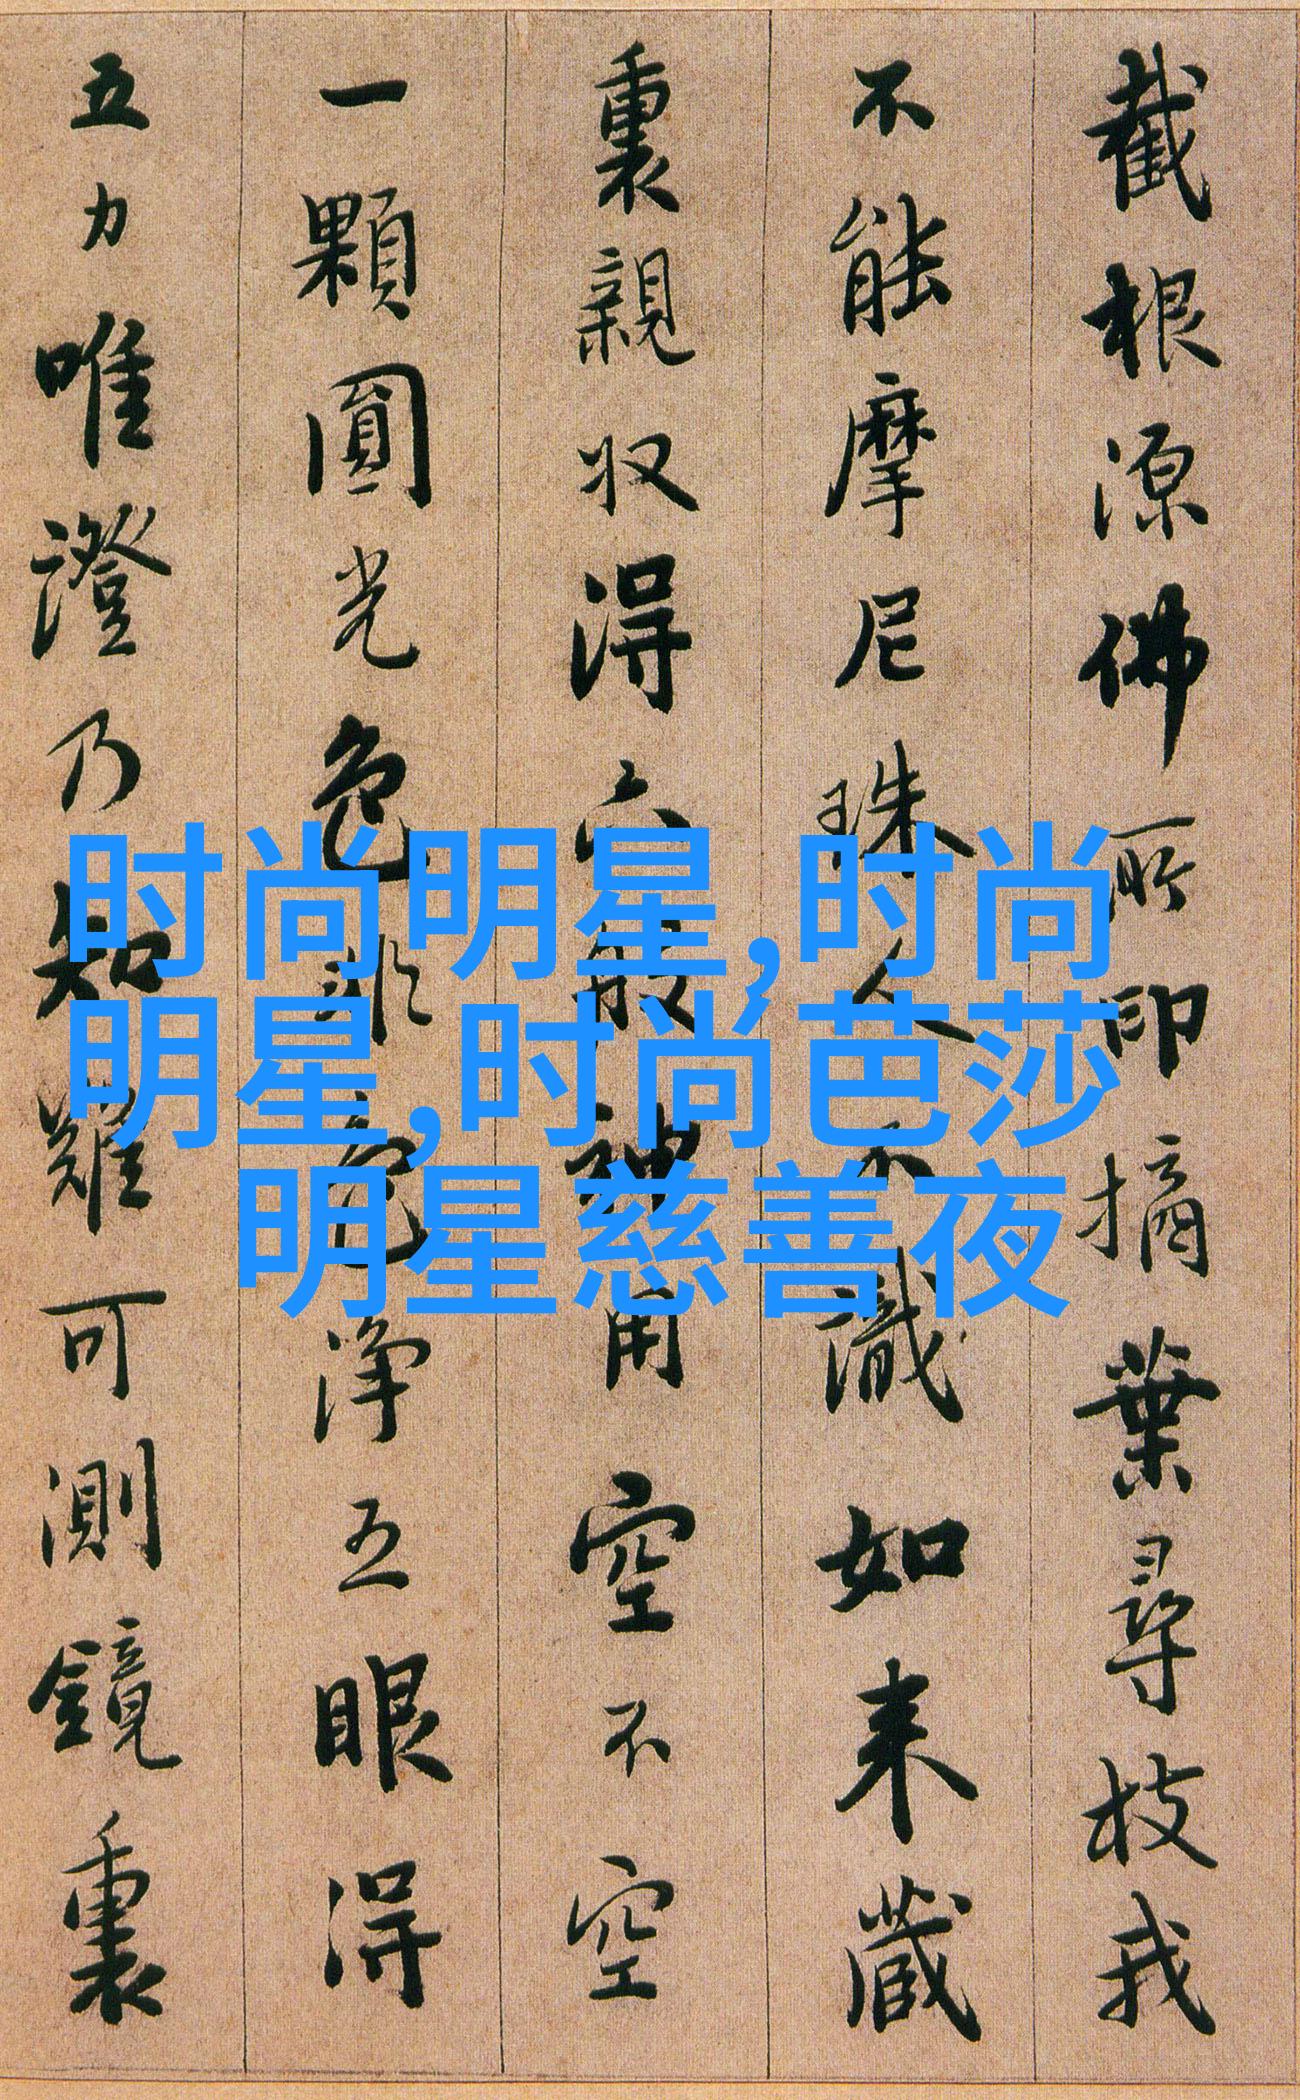 截根源佛所印摘葉尋枝我
不能摩尼珠人不識如来藏
裏親收得六般神用空不空
一顆圓光色非色淨五眼得
五力唯證乃知難可測鏡裏
时尚明星,时尚
明星,时尚芭莎
明星慈善夜